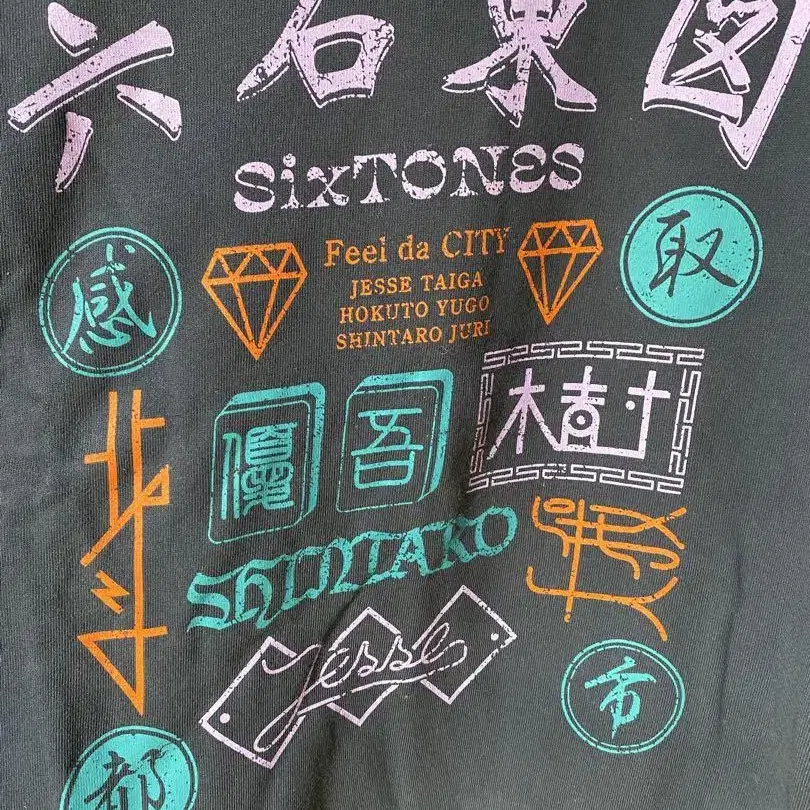 六石東図
SixTONES
感
取
Feel da CITY
JESSE TAIGA
HOKUTO YUGO
SHINTARO JURI
北斗
優吾
樹
SHINTARO
Jesse
市
都